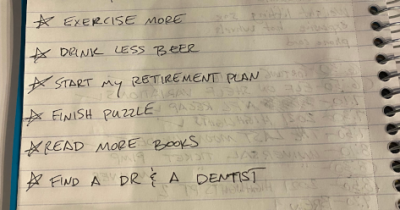 ☆ EXERCISE MORE
☆ DRINK LESS BEER
☆ START MY RETIREMENT PLAN
☆ FINISH PUZZLE
☆ READ MORE BOOKS
☆ FIND A DR & A DENTIST